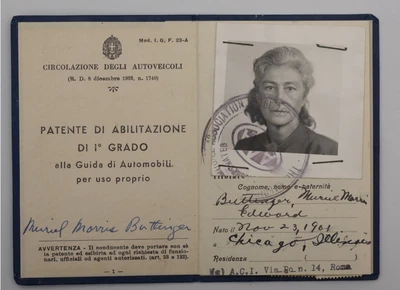 Mod. I, G, F. 23-A
CIRCOLAZIONE DEGLI AUTOVEICOLI
(R. D. 8 dicembre 1933, n. 1740)
PATENTE DI ABILITAZIONE
DI I° GRADO
alla Guida di Automobili,
per uso proprio
Muriel Morris Buttinger
AVVERTENZA - Il conducente deve portare con sè
la patente ed esibirla ad ogni richiesta di funzio-
nari, ufficiali ed agenti autorizzati.
- 1 -
ASSOCIATION
Cognome, nome e paternità
Buttinger, Muriel Morris
Edward
Nato il Nov 23, 1901
a Chicago, Illinois
Residenza
A.C.I. Via n. 14, Roma